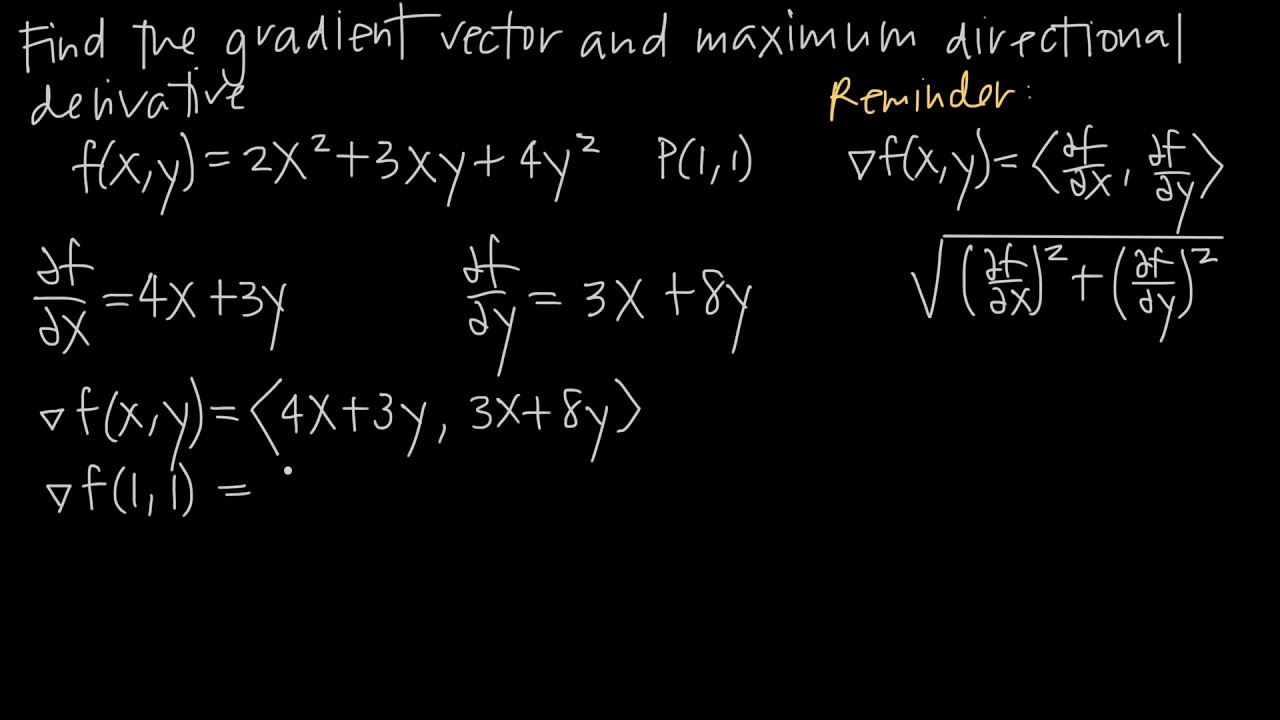 Find the gradient vector and maximum directional
derivative
Reminder:
f(x,y)=2x²+3xy+4y² P(1,1)
∇f(x,y)=⟨∂f/∂x, ∂f/∂y⟩
∂f/∂x=4x+3y ∂f/∂y=3x+8y
√((∂f/∂x)²+(∂f/∂y)²)
∇f(x,y)=⟨4x+3y, 3x+8y⟩
∇f(1,1)=